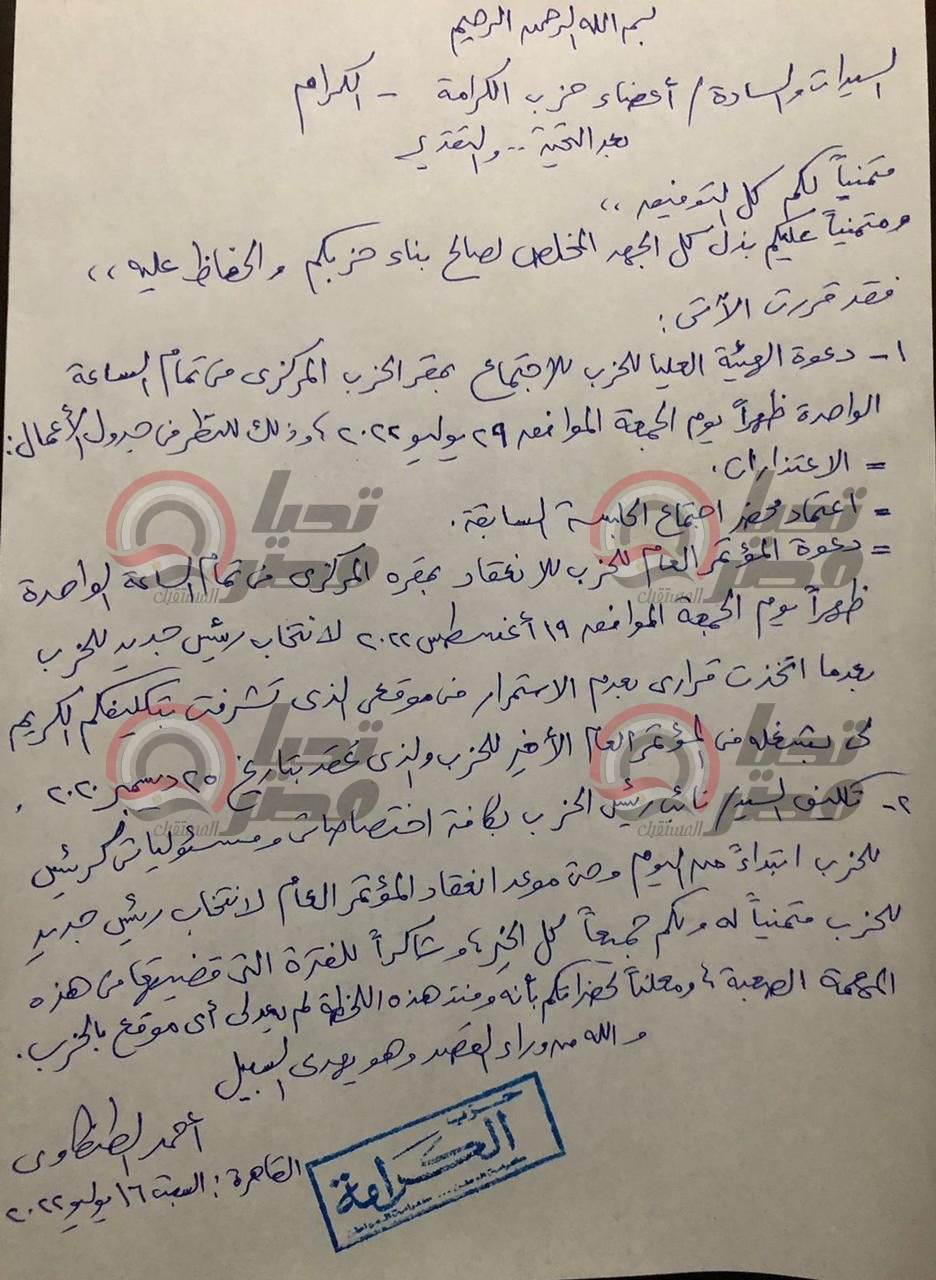 بسم الله الرحمن الرحيم
السيدات والسادة / أعضاء حزب الكرامة - الكرام
بعد التحية .. والتقدير
متمنياً لكم كل التوفيق ،،
ومتمنياً عليكم بذل كل الجهد المخلص لصالح بناء حزبكم والحفاظ عليه ،،
فقد قررت الآتى :
١- دعوة الهيئة العليا للحزب للاجتماع بمقر الحزب المركزى فى تمام الساعة
الواحدة ظهراً يوم الجمعة الموافق ٢٩ يوليو ٢٠٢٢ ، وذلك للنظر فى جدول الأعمال :
= الاعتذارات .
= اعتماد محضر اجتماع الجلسة السابقة .
= دعوة المؤتمر العام للحزب للانعقاد بمقره المركزى فى تمام الساعة الواحدة
ظهراً يوم الجمعة الموافق ١٩ أغسطس ٢٠٢٢ لانتخاب رئيس جديد للحزب
بعدما اتخذت قرارى بعدم الاستمرار فى موقعى الذى تشرفت بتكليفكم الكريم
لى بشغله فى المؤتمر العام الأخير للحزب والذى عقد بتاريخ ٢٥ ديسمبر ٢٠٢٠ .
٢- تكليف السيد / نائب رئيس الحزب بكافة اختصاصاتى ومسئولياتى كرئيس
للحزب ابتداءً من اليوم وحتى موعد انعقاد المؤتمر العام لانتخاب رئيس جديد
للحزب متمنياً له ولكم جميعاً كل الخير ، وشاكراً للفترة التى قضيتها فى هذه
المهمة الصعبة ، ومعلناً لحضراتكم بأنه ومنذ هذه اللحظة لم يعد لى أى موقع بالحزب .
والله من وراء القصد وهو يهدى السبيل
أحمد الطنطاوى
القاهرة : السبت ١٦ يوليو ٢٠٢٢
حزب
الكرامة
تحيا
مصر
المستقبل
تحيا
مصر
المستقبل
تحيا
مصر
المستقبل
تحيا
مصر
المستقبل